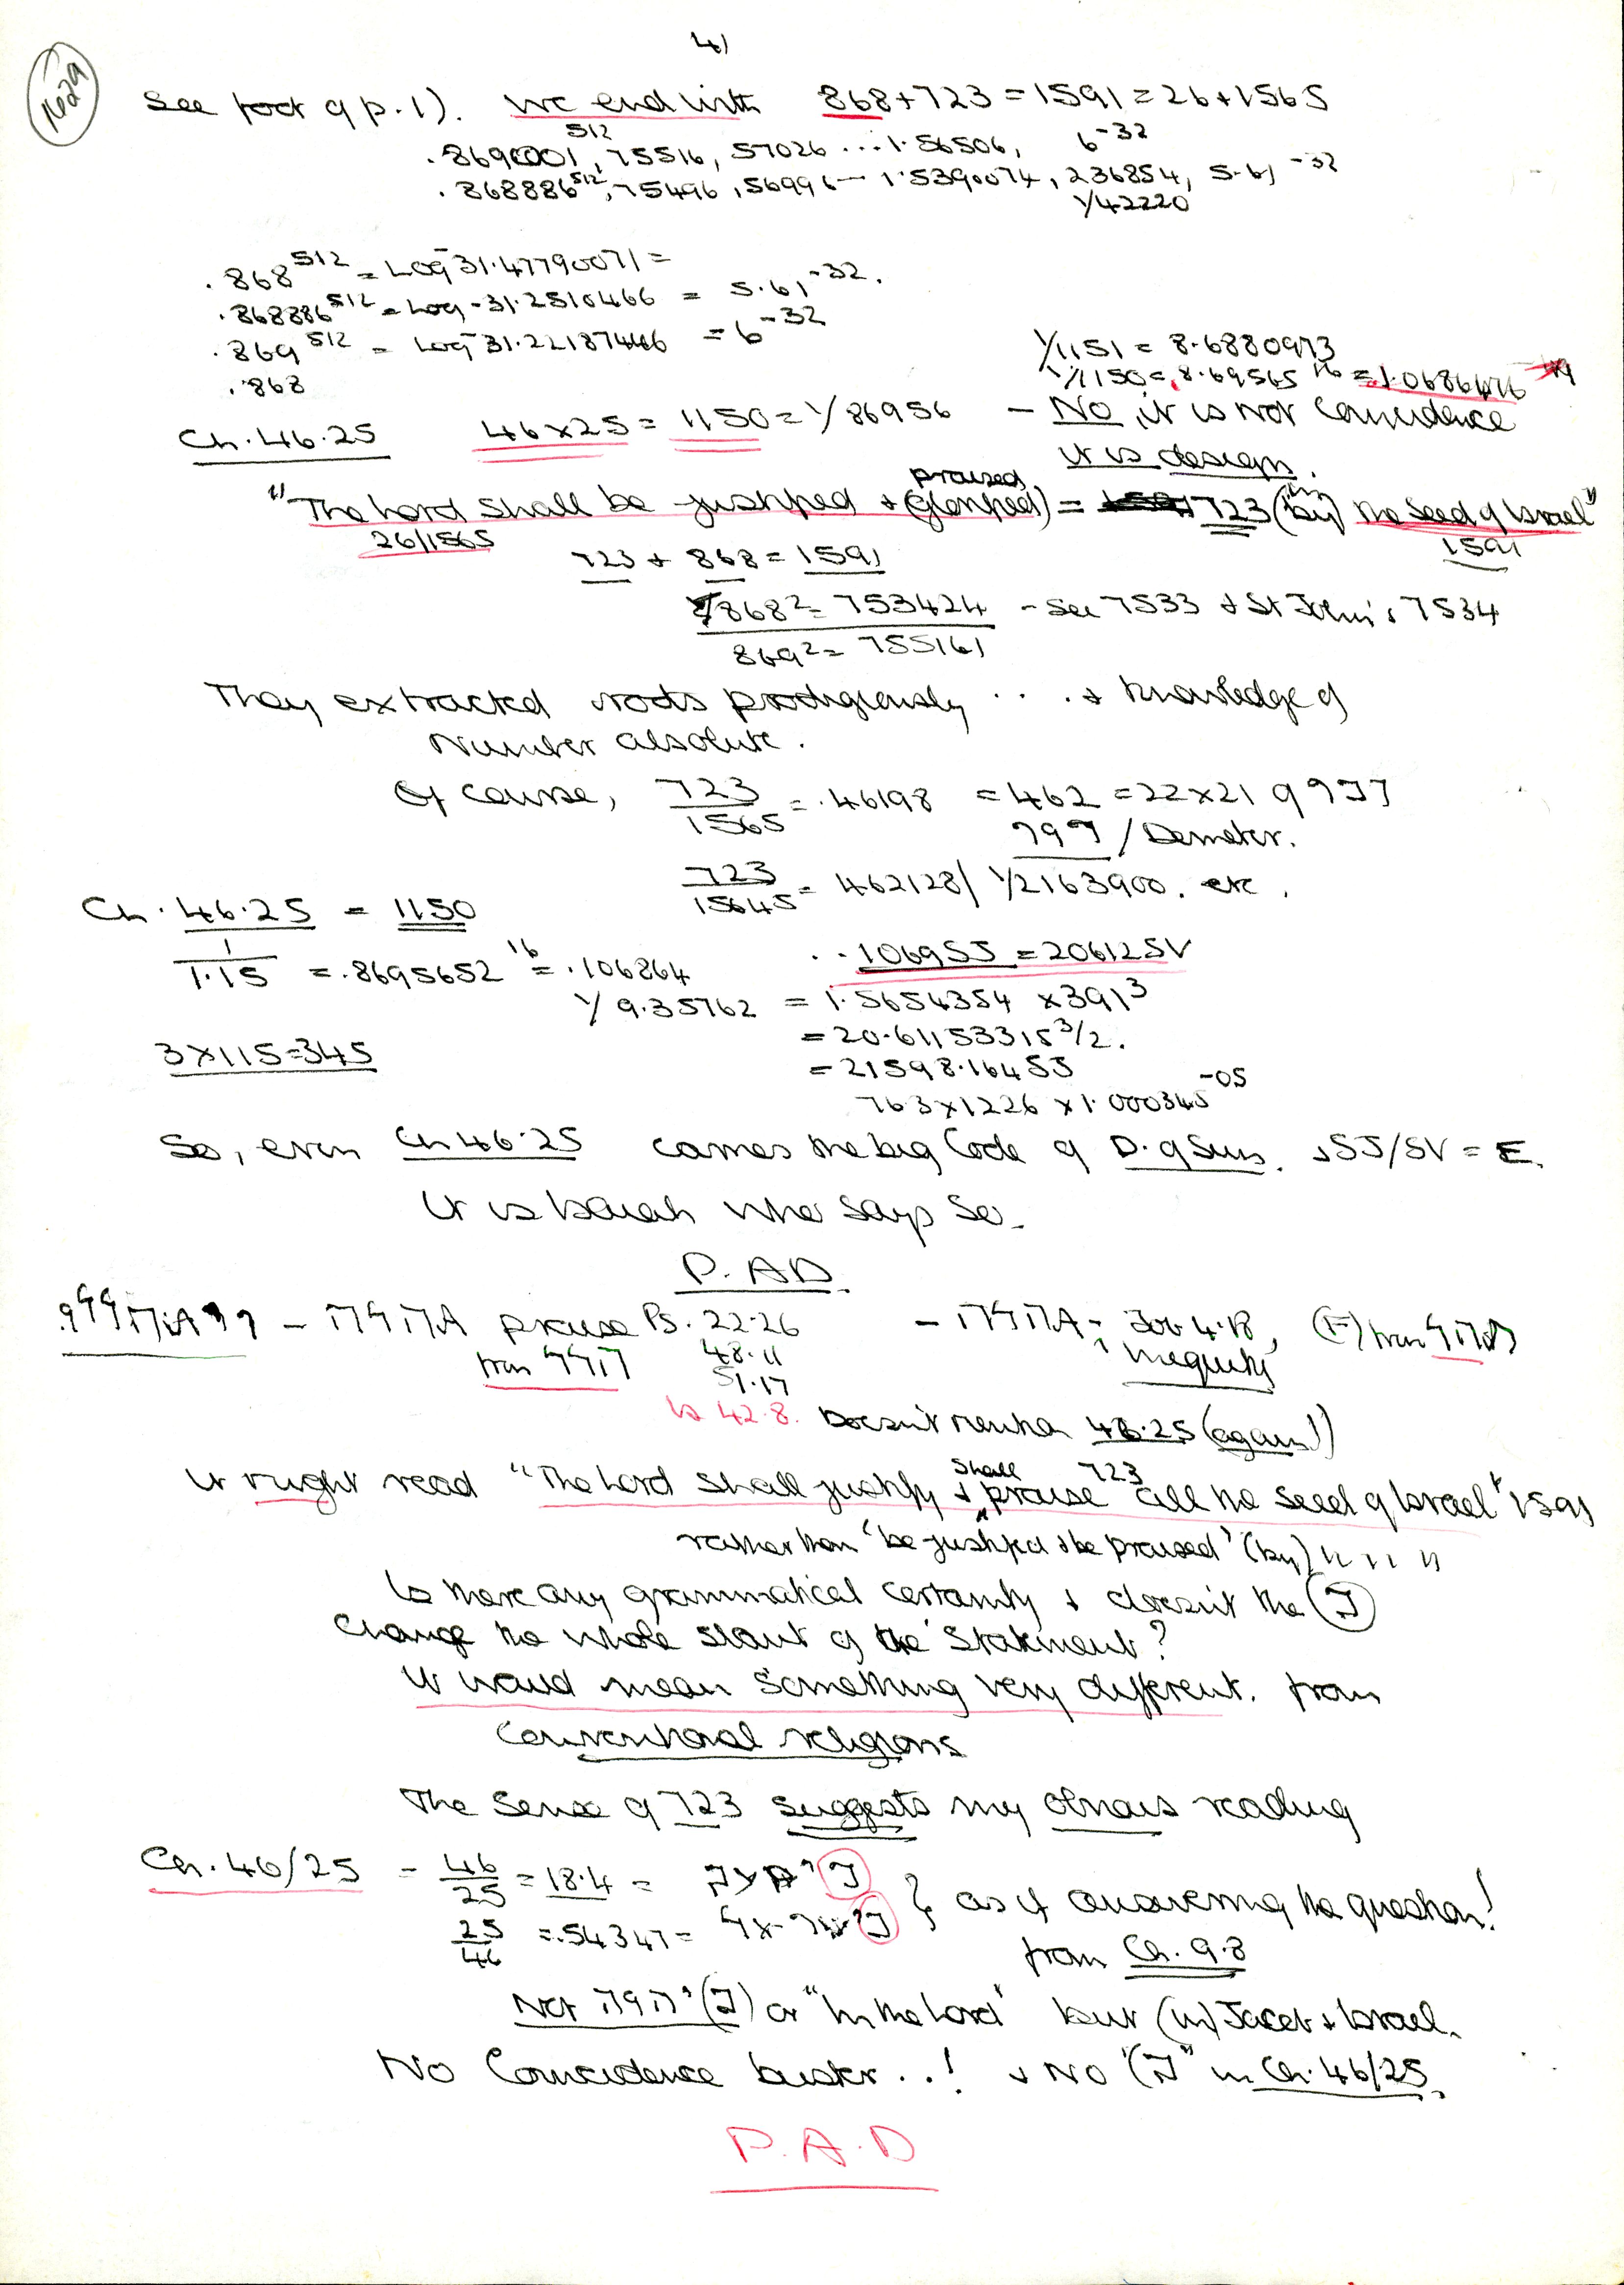 4)
See foot of p.1). We end with 868+723=1591=26+1565
.8690001^512, 75516, 57026 ... 1.56506, 6^-32
.868886^512, 75496, 56996 — 1.5390074, 236854, 5.61^-32
1/42220
.868^512 = Log 31.47790071 =
.868886^512 = Log -31.2510466 = 5.61^-32.
.869^512 = Log 31.22187446 = 6^-32
.868
1/1151 = 8.6880973
1/1150 = 8.69565^16 = 1.0686476
Ch. 46.25 46x25 = 1150 = 1/86956 - No, it is not coincidence
it is design.
praised
"The Lord shall be justified + (glorified) = 723 (by) the seed of Israel"
26/1565 1591
723 + 868 = 1591
868² = 753424 - See 7533 + St John's 7534
869² = 755161
They extracted roots prodigiously . . . + knowledge of
Number absolute.
Of course, 723/1565 = .46198 = 462 = 22x21 of
/ Demeter.
723/15645 = 462128/ 1/2163900. etc.
Ch. 46.25 = 1150
1/1.15 = .8695652^16 = .106864 . . 106955 = 206125V
1/9.35762 = 1.5654354 x 391³
= 20.61153315^3/2.
3x115=345
= 21598.16455
763x1226 x 1.000345^-05
So, even Ch 46.25 carries the big Code of D. of Suns. + SJ/SV = E.
It is Isaiah who says So.
P. AD
praise Ps. 22.26
48.11
51.17
Job 4.18, iniquity
Is 42.8. Doesn't mention 46.25 (again!)
It might read "The Lord shall justify + shall praise 723 all the seed of Israel" 1591
rather than 'be justified + be praised' (by) " " "
Is there any grammatical certainty + doesn't the (ב)
change the whole slant of the statement?
It would mean something very different. from
Conventional religions
The Sense of 723 suggests my obvious reading
Ch. 46/25 - 46/25 = 18.4 =
25/46 = .54347 =
} as if answering the question!
from Ch. 9.8
Not (ב) or "In the Lord" but (in) Jacob + Israel.
No Coincidence buster..! + No "(ב" in Ch. 46/25.
P.A.D